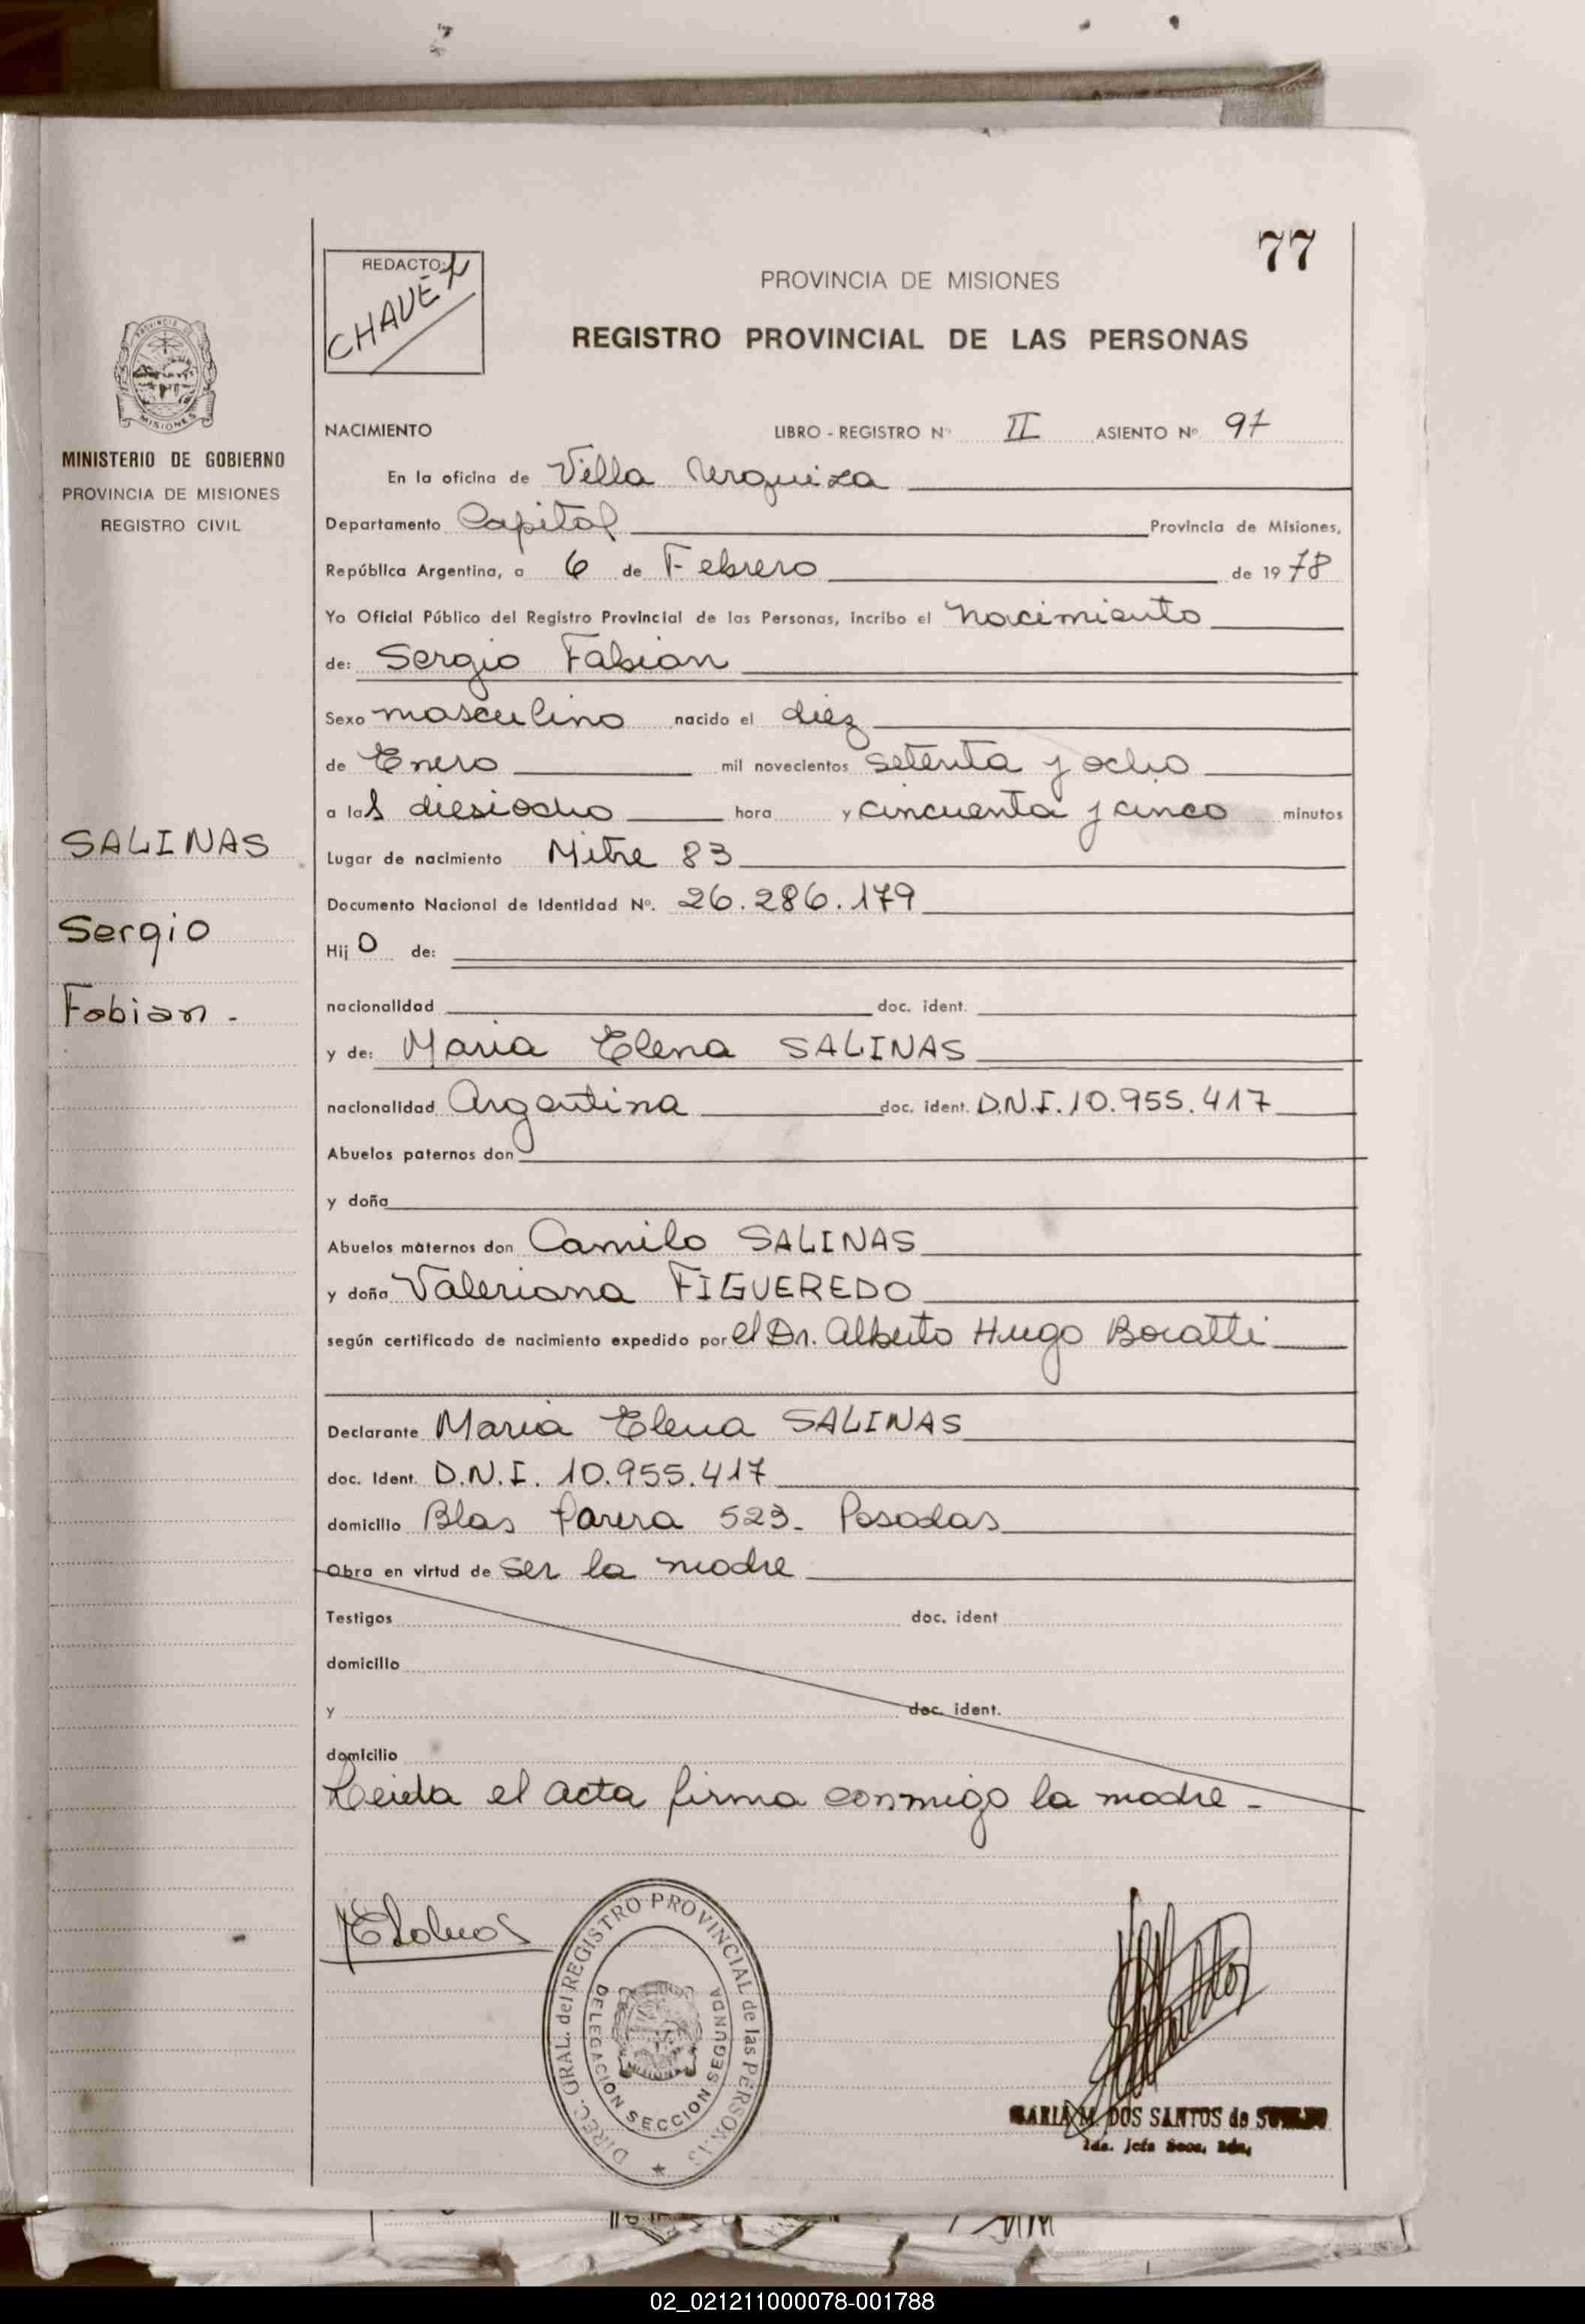 77
REDACTO:
CHAVEZ
PROVINCIA DE MISIONES
REGISTRO PROVINCIAL DE LAS PERSONAS
MINISTERIO DE GOBIERNO
PROVINCIA DE MISIONES
REGISTRO CIVIL
SALINAS
Sergio
Fabian -
NACIMIENTO LIBRO - REGISTRO Nº II ASIENTO Nº 97
En la oficina de Villa Urquiza
Departamento Capital Provincia de Misiones,
República Argentina, a 6 de Febrero de 1978
Yo Oficial Público del Registro Provincial de las Personas, incribo el nacimiento
de: Sergio Fabian
Sexo masculino nacido el diez
de Enero mil novecientos setenta y ocho
a las diesiocho hora y cincuenta y cinco minutos
Lugar de nacimiento Mitre 83
Documento Nacional de Identidad Nº. 26.286.179
Hijo de:
nacionalidad doc. ident.
y de: Maria Elena SALINAS
nacionalidad Argentina doc. ident. D.N.I. 10.955.417
Abuelos paternos don
y doña
Abuelos maternos don Camilo SALINAS
y doña Valeriana FIGUEREDO
según certificado de nacimiento expedido por el Dr. Alberto Hugo Boratti
Declarante Maria Elena SALINAS
doc. Ident. D.N.I. 10.955.417
domicilio Blas Parera 523- Posadas
Obra en virtud de ser la madre
Testigos doc. ident
domicilio
y doc. ident.
domicilio
Leida el acta firma conmigo la madre -
DIREC. GRAL. del REGISTRO PROVINCIAL de las PERSONAS
DELEGACION SECCION SEGUNDA
MARIA M. DOS SANTOS de
02_021211000078-001788